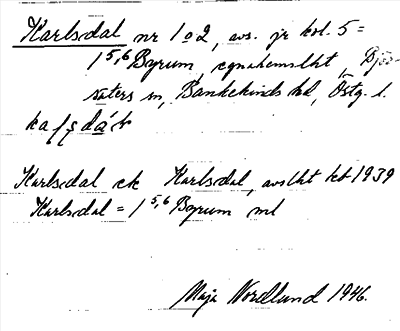 Karlsdal nr 1 o 2, avs. jr kol. 5 =
1 5,6 Byrum egnahemslht, Björ-
säters sn, Bankekinds hd, Östg. l.
Karlsdal ek Karlsdal, avslht kb 1939
Karlsdal = 1 5,6 Byrum ml
Maja Nordlund 1946.